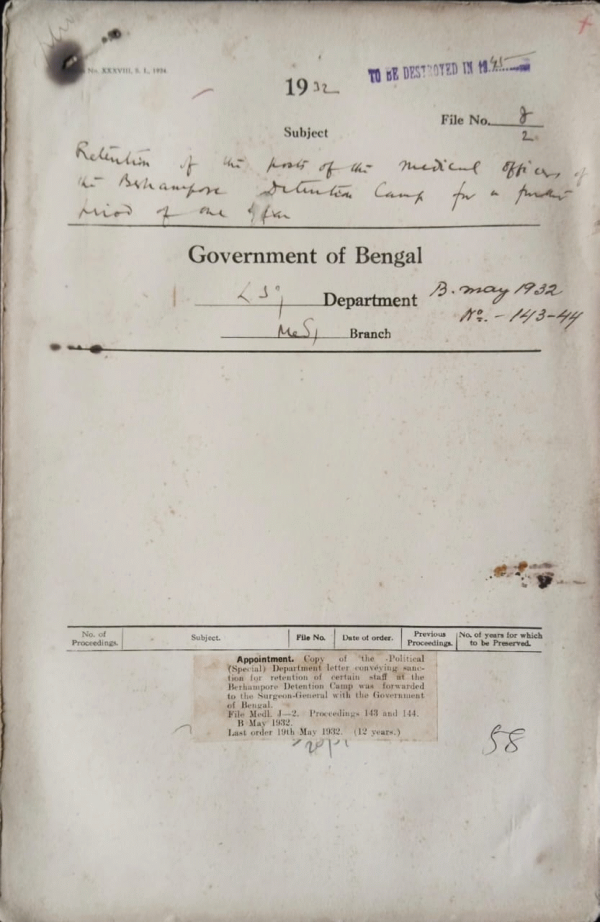 No. XXXVIII, S. L., 1934.
TO BE DESTROYED IN 1945
1932
File No. J/2
Subject
Retention of the posts of the medical officers of
the Berhampore Detention Camp for a further
period of one year
Government of Bengal
L.S.G. Department
B. May 1932
Medl. Branch
No. - 143-44
No. of Proceedings. Subject. File No. Date of order. Previous Proceedings. No. of years for which to be Preserved.
Appointment. Copy of the Political
(Special) Department letter conveying sanc-
tion for retention of certain staff at the
Berhampore Detention Camp was forwarded
to the Surgeon-General with the Government
of Bengal.
File Medl. J—2. Proceedings 143 and 144.
B May 1932.
Last order 19th May 1932. (12 years.)
58